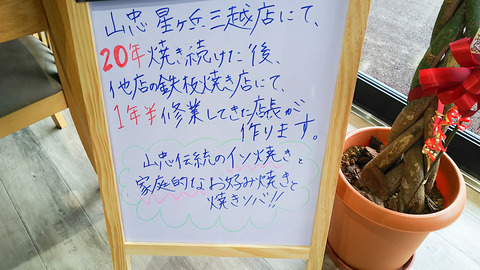 山忠 星ヶ丘 三越店にて、
20年焼き続けた後、
他店の鉄板焼き店にて、
1年半修業してきた店長が
作ります。
山忠伝統のイソ焼きと
家庭的なお好み焼きと
焼きソバ!!